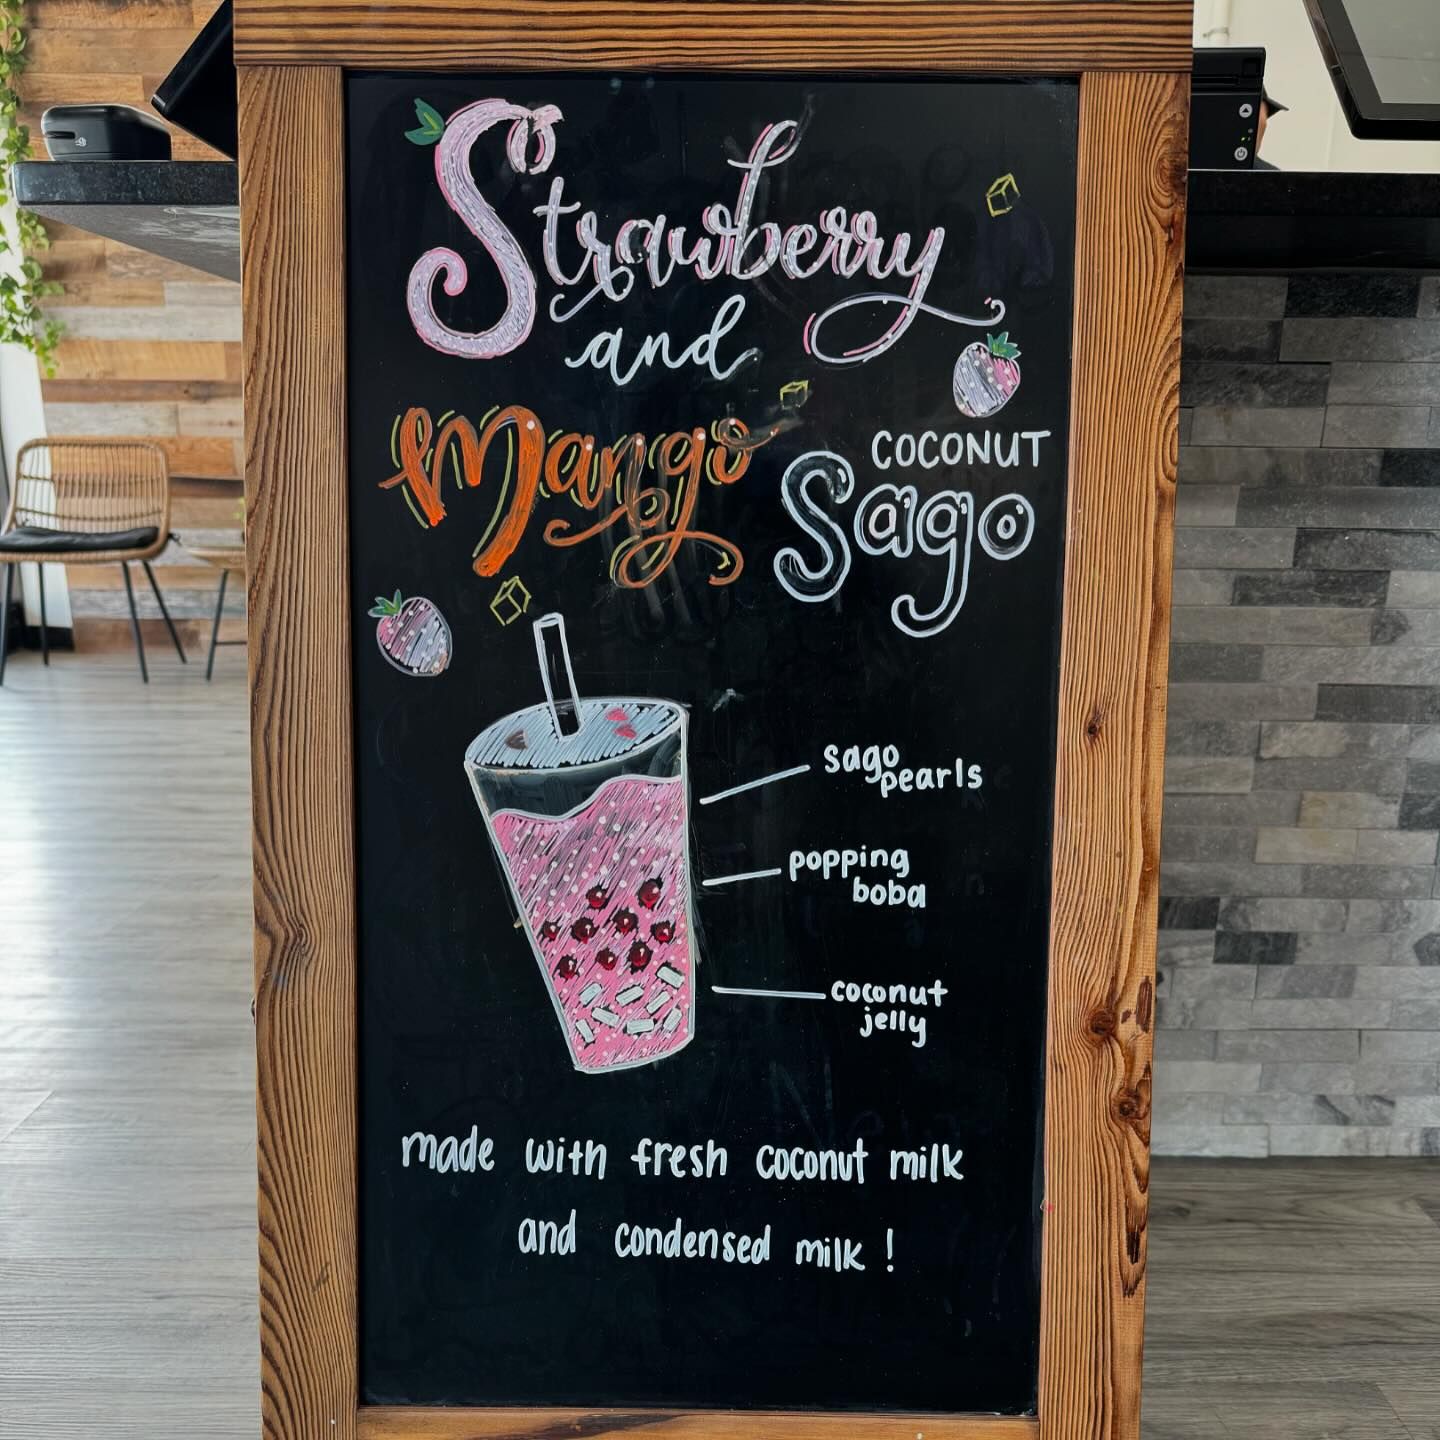 Strawberry
and
Mango
COCONUT
Sago
sago
pearls
popping
boba
coconut
jelly
made with fresh coconut milk
and condensed milk !